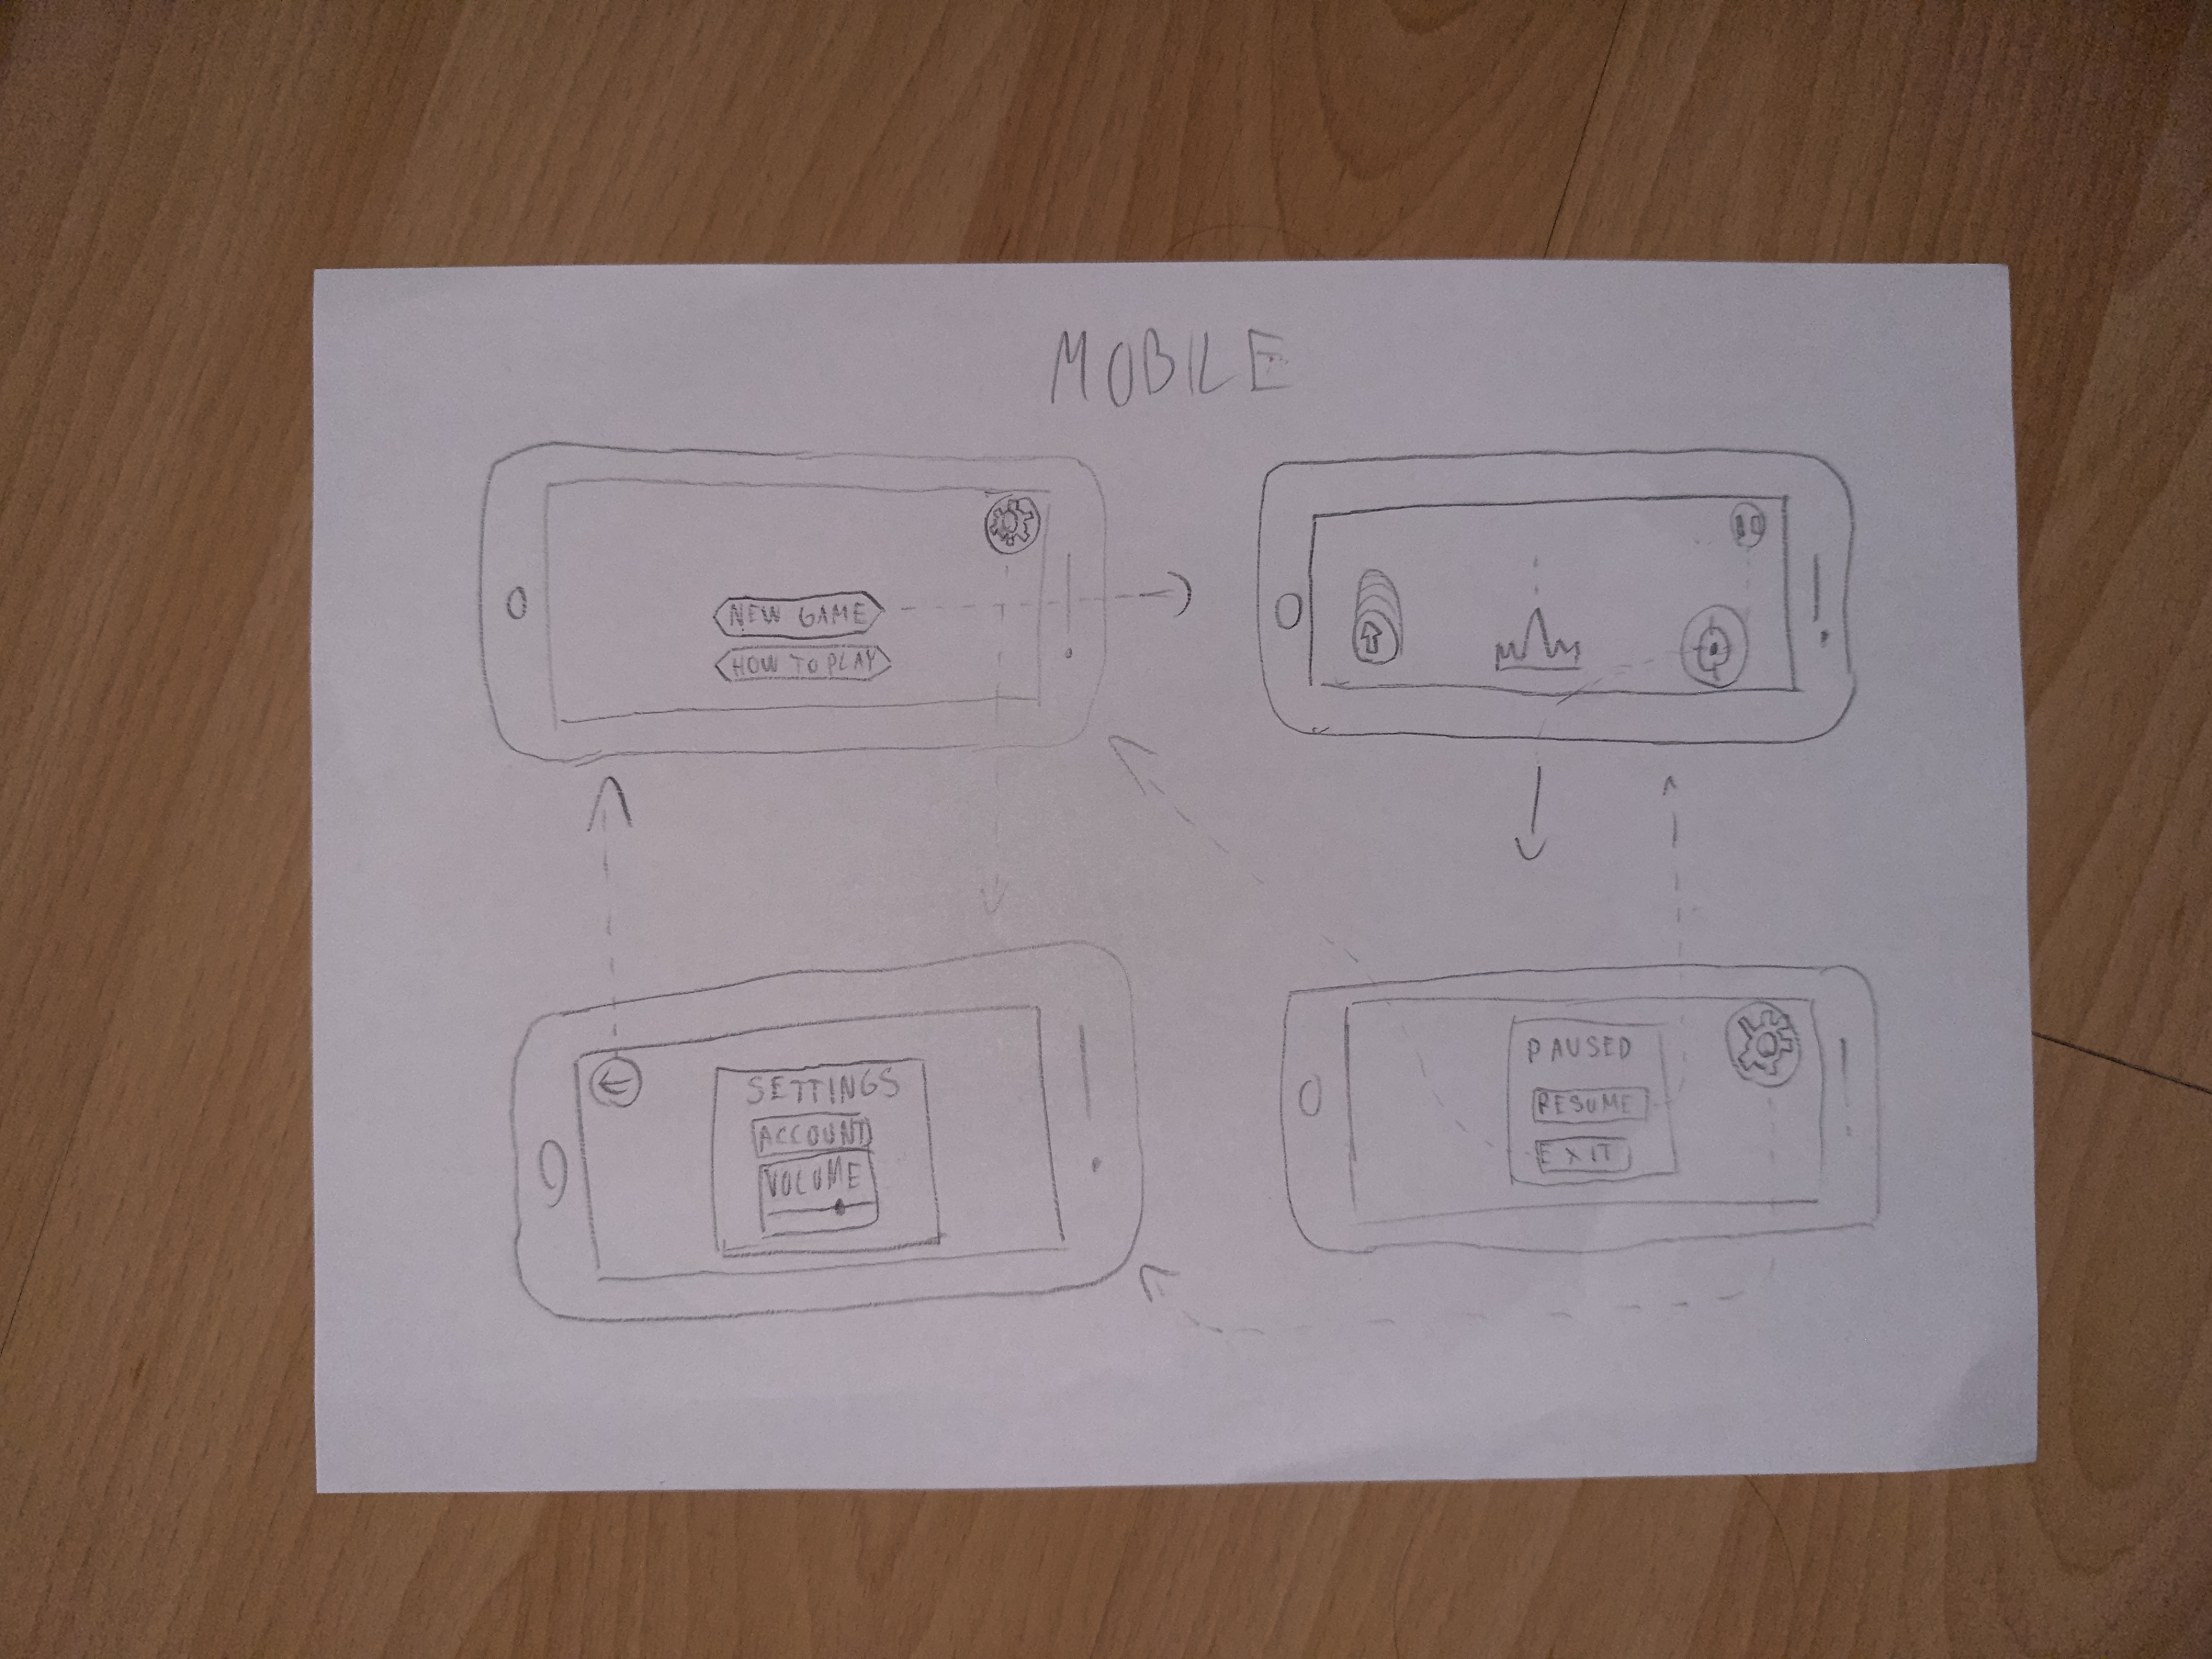 MOBILE
NEW GAME
HOW TO PLAY
SETTINGS
ACCOUNT
VOLUME
PAUSED
RESUME
EXIT